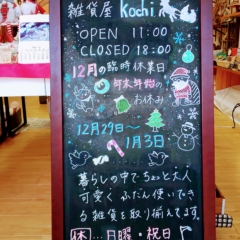 雑貨屋 Kochi
OPEN 11:00
CLOSED 18:00
12月の臨時休業日
年末年始の
お休み
12月29日〜
1月3日
暮らしの中でちょっと大人
可愛く ふだん使いできる
雑貨を取り揃えてます。
休…日曜・祝日